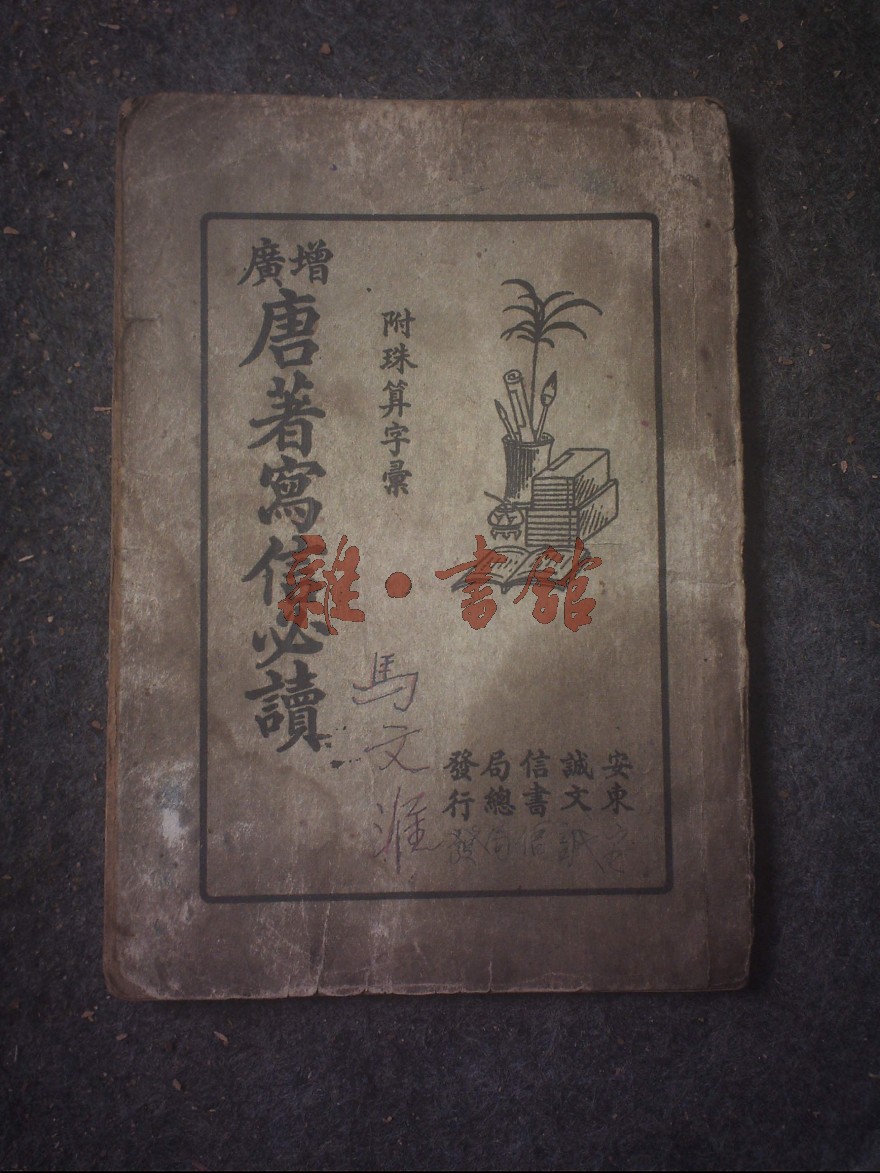 增廣
唐著寫信必讀
附珠算字彙
安東
誠文
信書
局總
發行
馬文
雜·書館